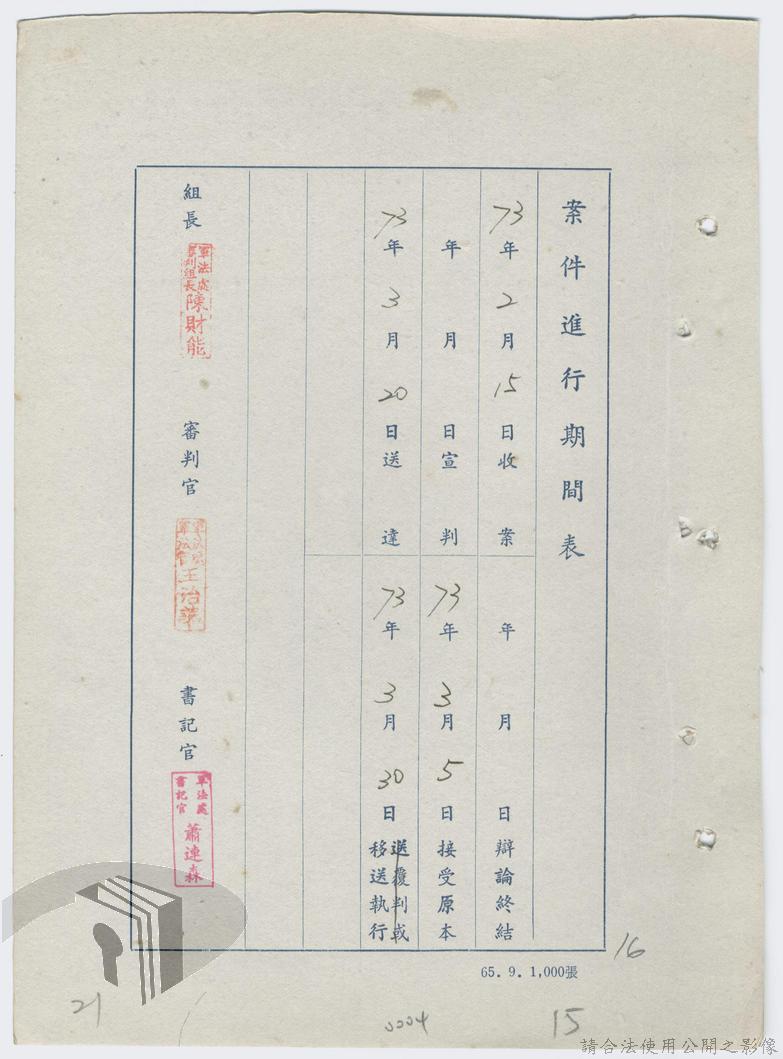 案件進行期間表
73年2月15日收案
年月日辯論終結
年月日宣判
73年3月5日接受原本
73年3月20日送達
73年3月30日送覆判或
移送執行
組長
軍法處
審判組長
陳財能
審判官
軍法處
軍法官
書記官
軍法處
書記官
蕭連森
65.9.1,000張
16
15
0004
21
請合法使用公開之影像